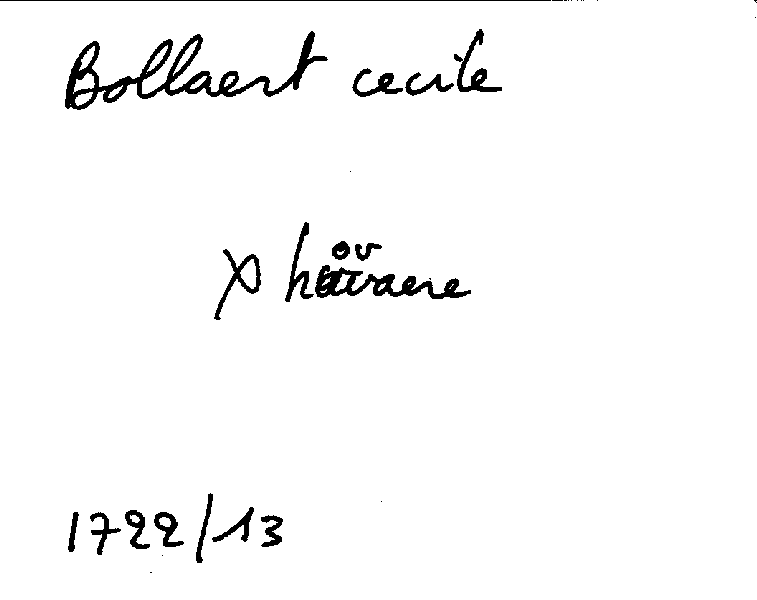 Bollaert cecile
x hovaere
1722/13